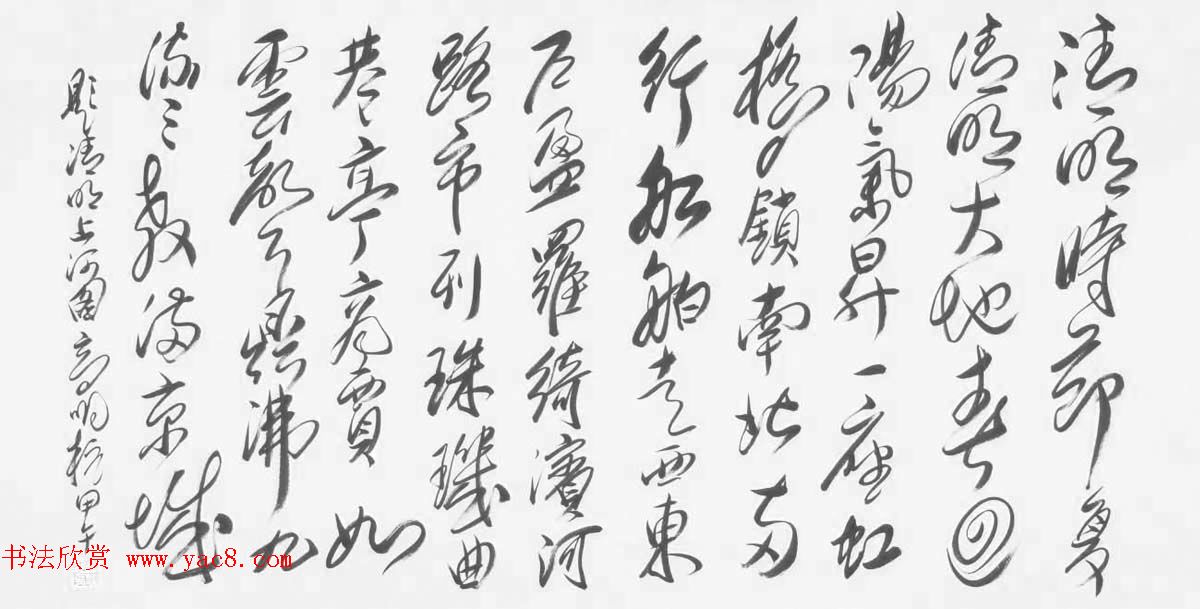 清明時節复
清明大地春回
陽氣昇一座虹
橋鎖南北兩
行船舶走西東
户盈羅綺濱河
路市列珠璣曲
巷亭商賈如
雲沸九
流三教滿京城
題清明上河图甲午
书法欣赏 www.yac8.com